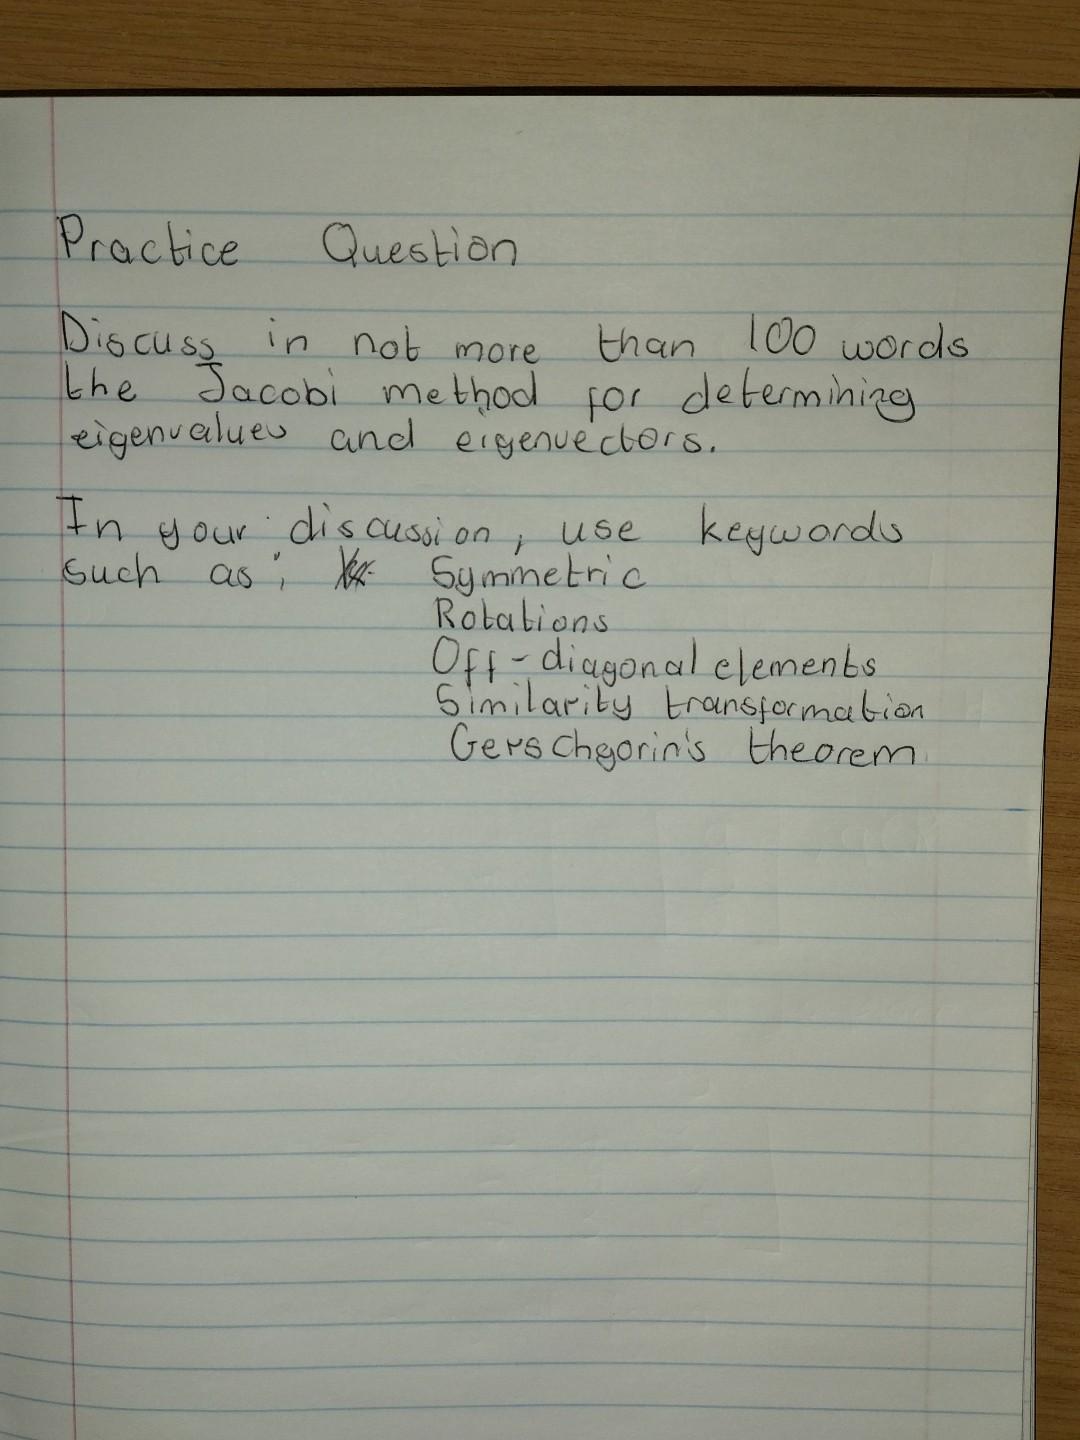 Practice Question
Discuss in not more than 100 words
the Jacobi method for determining
eigenvalues and eigenvectors.
In your discussion, use keywords
such as; Symmetric
Rotations
Off-diagonal elements
Similarity transformation
Gerschgorin's theorem.